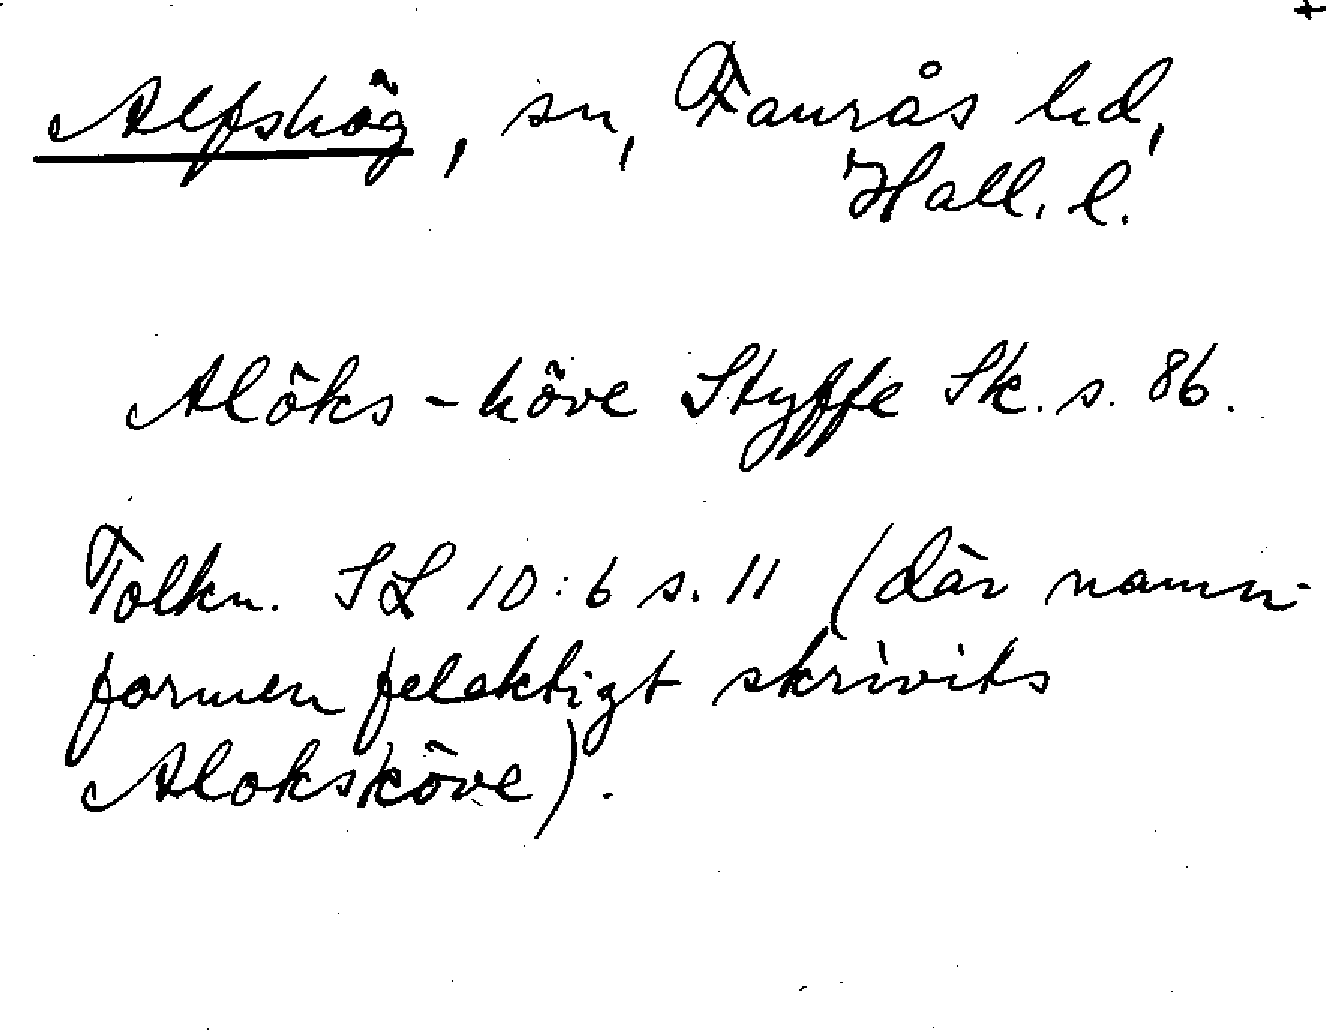 +
Alfshög, sn, Faurås hd,
Hall. l.
Alöks-höve Styffe Sk. s. 86.
Tolkn. SL 10:6 s. 11 (där namn-
formen felaktigt skrivits
Aloksköve).